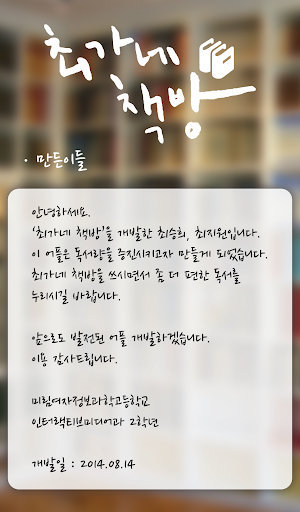 최가네
책방
· 만든이들
안녕하세요.
'최가네 책방'을 개발한 최승희, 최지원입니다.
이 어플은 독서량을 증진시키고자 만들게 되었습니다.
최가네 책방을 쓰시면서 좀 더 편한 독서를
누리시길 바랍니다.
앞으로도 발전된 어플 개발하겠습니다.
이용 감사드립니다.
미림여자정보과학고등학교
인터랙티브미디어과 2학년
개발일 : 2014.08.14